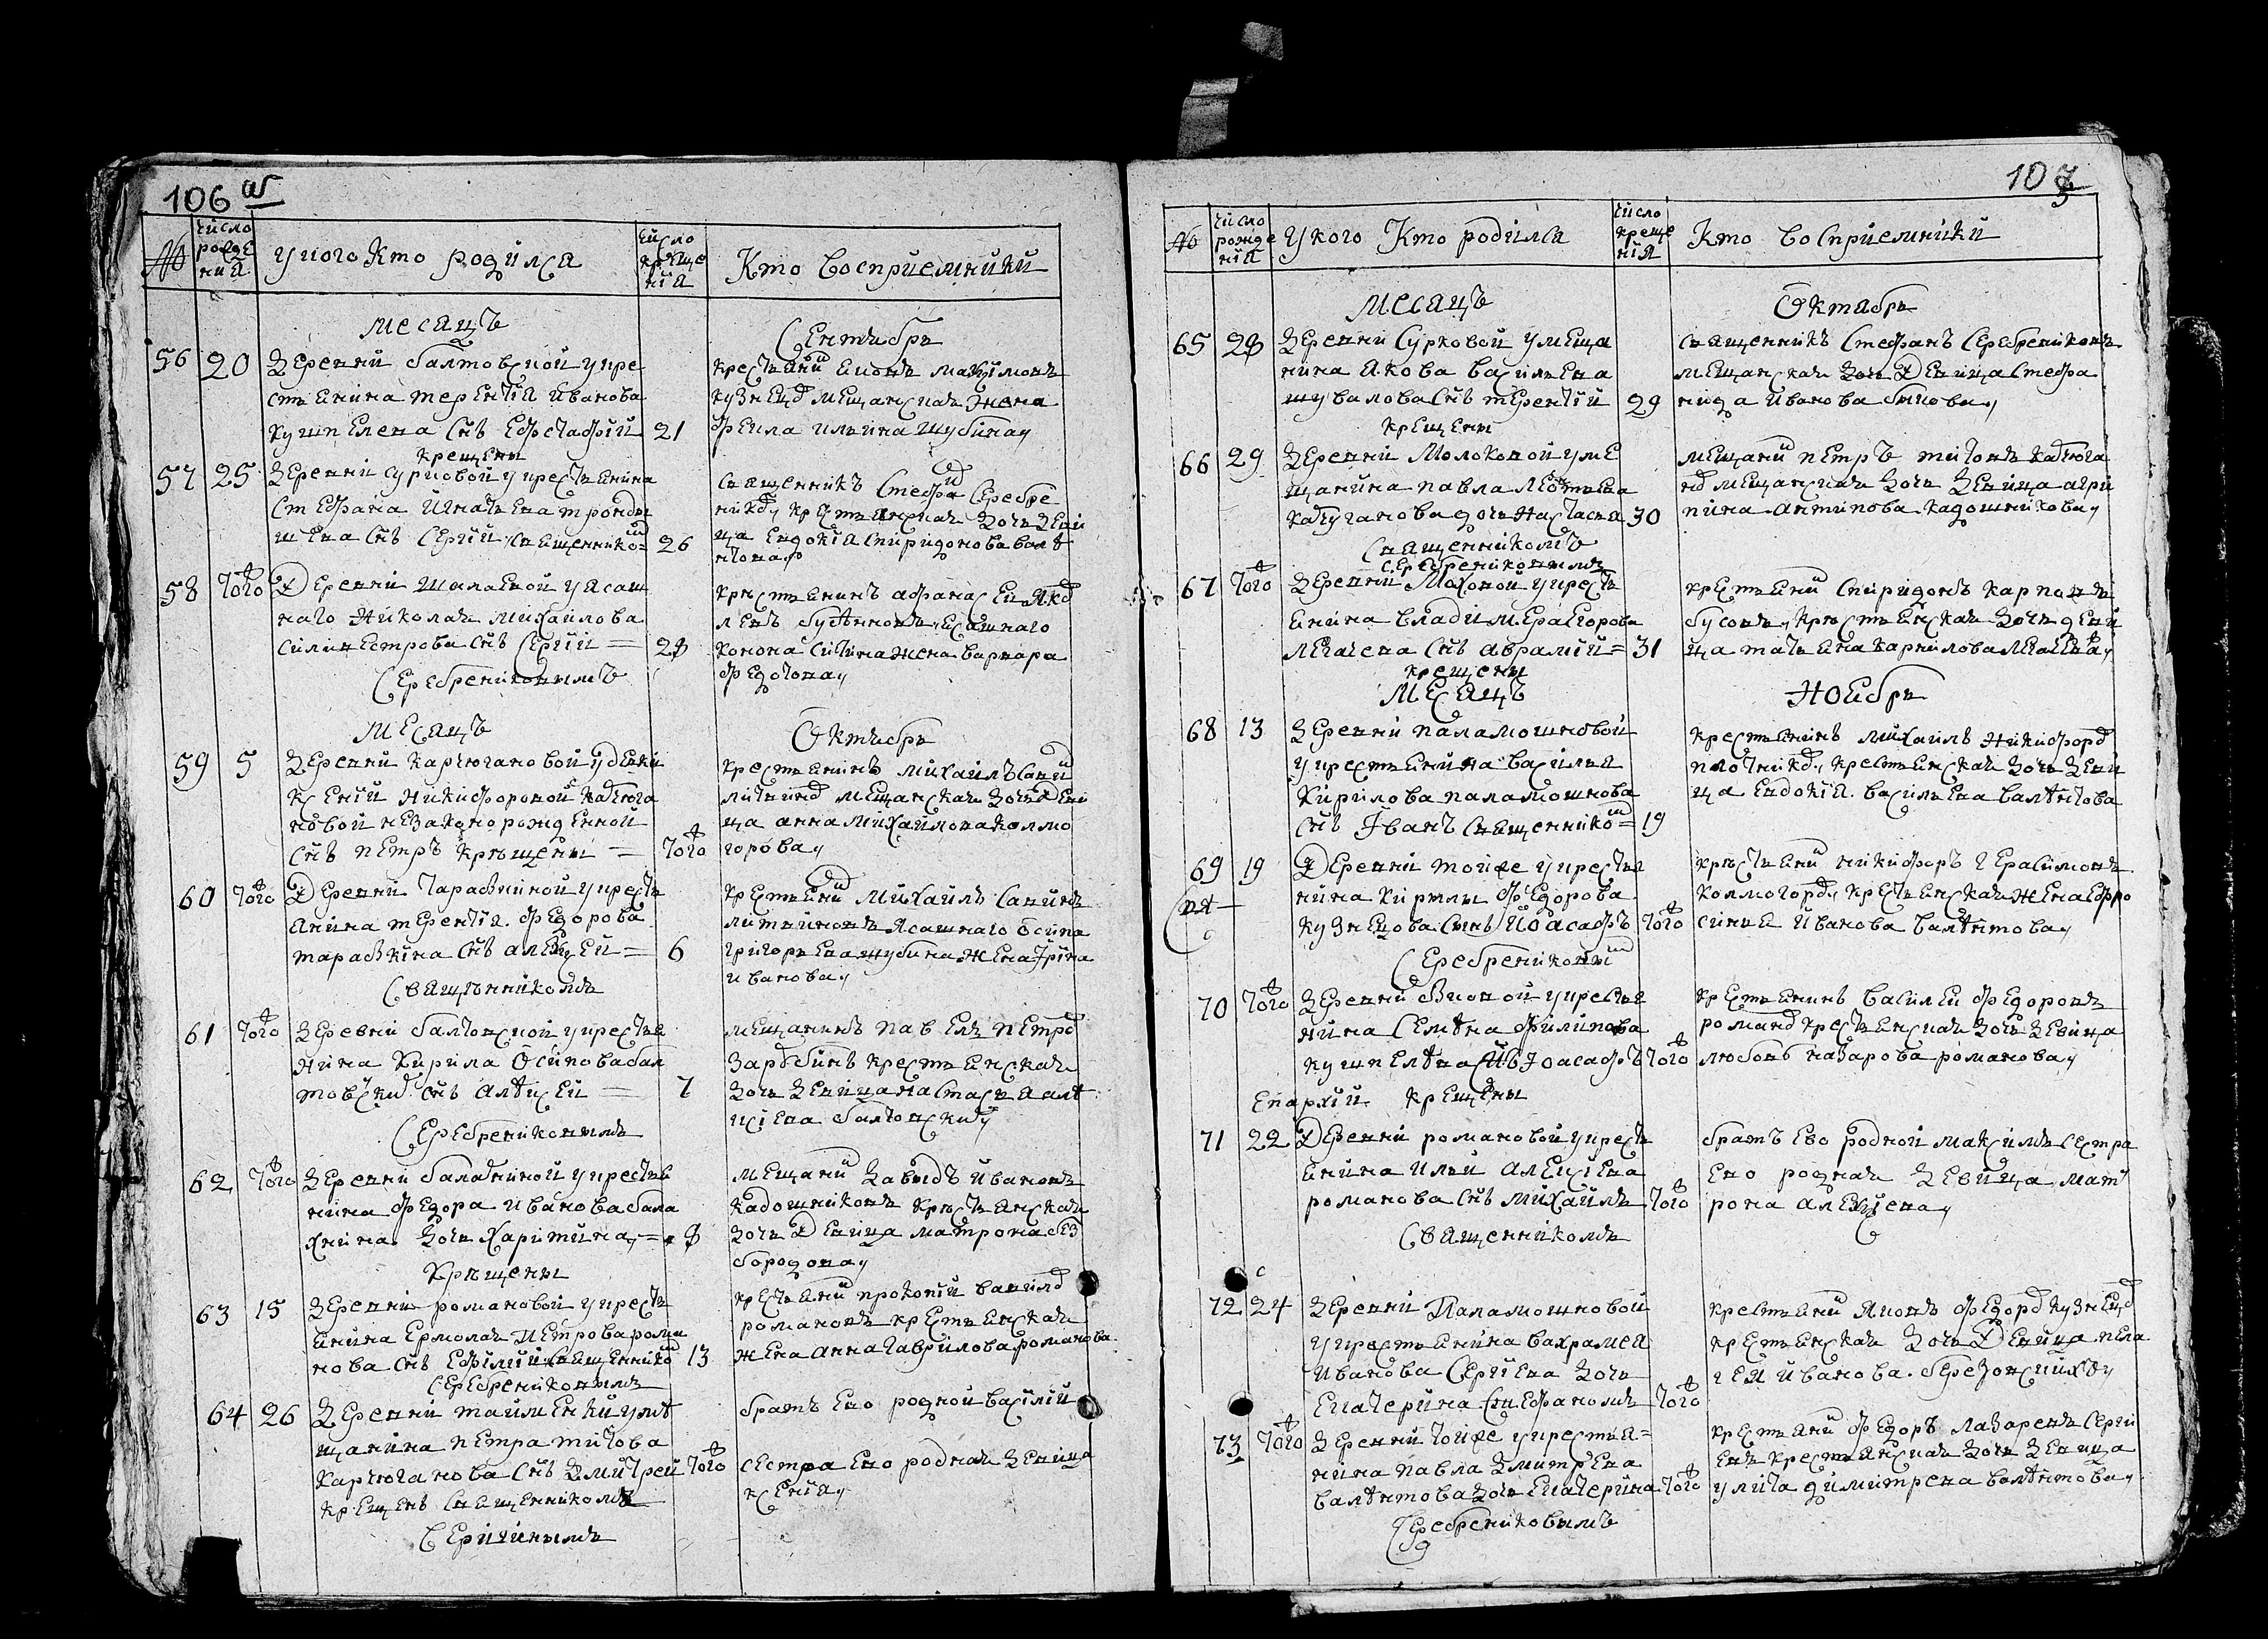 106
№
число рожде нія
у кого кто родился
число креще нія
Кто восприемники
месяцъ
Сентябрь
56 20 деревни балтовской у кре
стьянина терентія иванова
кушпелева снъ Ефстафій 21
крестьяни максимовъ
кузнецо мещанская жена
фекла ильина шубина
крещены
57 25 деревни сурковой у крестьянина
стефана игнатьева
снъ Сергій священнико 26
священникъ стефа серебре
нико крестьянская дочь деви
ца евдокіа спиридонова валѣ
нтова
58 того Деревни шалаевой у ясаш
наго николая михайлова
силивестрова снъ Сергій 28
крестьянинъ афанасей яко
левъ ясашнаго
конона жена варвара
федотова
Серебрениковымъ
месяцъ
Октябрь
59 5 деревни карчюгановой у девки
ксеніи никифоровой
новой незаконорожденной
снъ петръ крещены того
крестьянинъ михаилъ сави
литвино мещанская дочь деви
ца анна михайлова колмо
горова
60 того Деревни тараскиной у кресть
янина терентія федорова
тараскина снъ алексей 6
крестьяни михаилъ савинъ
литвиновъ ясашнаго осипа
григорьева шубина жена ірина
иванова
Священникомъ
61 того деревни балтовской у крестья
нина кирила осипова бал
товски снъ алѣксей 7
мещанинъ павелъ петро
крестьянская
дочь девица настасья алѣ
ксіева балтовских
Серебрениковымъ
62 того деревни балахниной у крестья
нина федора иванова бала
хнина дочь харитина 8
мещани давыдъ ивановъ
кадошниковъ крестьянская
дочь Девица матрона без
бородова
крещены
63 15 деревни романовой у кресть
янина ермолая петрова рома
нова снъ Ефимій священнико 13
крестьяни прокопій вавило
романовъ крестьянская
жена анна гаврилова романова
Серебрениковымъ
64 26 деревни тайменки у мѣ
щанина петра титова
карчюганова снъ дмитрей того
крещенъ священникомъ
братъ ево родной василій
сестра ево родная девица
ксенія
107
№
число рожде нія
У кого Кто родился
число креще нія
Кто восприемники
месяцъ
Октябрь
65 28 деревни Сурковой у меща
нина якова васильева
шувалова снъ терентій 29
священникъ Стефанъ Серебрениковъ
мещанская дочь Девица стефа
нида иванова быкова
крещены
66 29 деревни Молоковой у ме
щанина павла леонтьева
дочь настасья 30
мещани петръ титовъ
мещанская дочь девица агри
пина антипова кадошникова
Священникомъ
Серебрениковымъ
67 того деревни Моховой у кресть
янина владимера егорова
снъ аврамій 31
крестьяни спиридонъ карповъ
бусовъ крестьянская дочь деви
ца татьяна карпилова
крещены
месяцъ
ноябрь
68 13 деревни паламошновой
у крестьянина василья
кирилова паламошнова
снъ Іванъ священнико 19
крестьянинъ михаилъ никифоро
плотнико крестьянская дочь деви
ца евдокія васильева валѣнтова
69 19 Деревни тойже у крестья
нина кирилы федорова
кузнецова сынъ иоасафъ того
крестьяни никифоръ герасимовъ
колмогоро крестьянская жена ефро
синья иванова валѣнтова
Серебренковы
70 того деревни у крестья
нина семѣна филипова
кушпелѣва снъ іоасафъ того
крестьянинъ василеи федоровъ
романо крестьянская дочь девица
любовь назарова романова
Епархіи крещены
71 22 Деревни романовой у кресть
янина ильи алексіева
романова снъ михайлъ того
братъ ево родной максимъ сестра
ево родная девица мат
рона алексіева
Священникомъ
72 24 деревни Паламошновой
у крестьянина вахрамея
иванова сергіева дочь
екатерина того
крестьяни яковъ федоро кузнецо
крестьянская дочь Девица пела
гея иванова березовскихъ
73 того деревни тойже у крестья
нина павла дмитрева
валѣнтова дочь екатерина того
крестьяни федоръ лазаревъ серги
евъ крестьянская дочь девица
улита димитрева валѣнтова
Серебрениковымъ